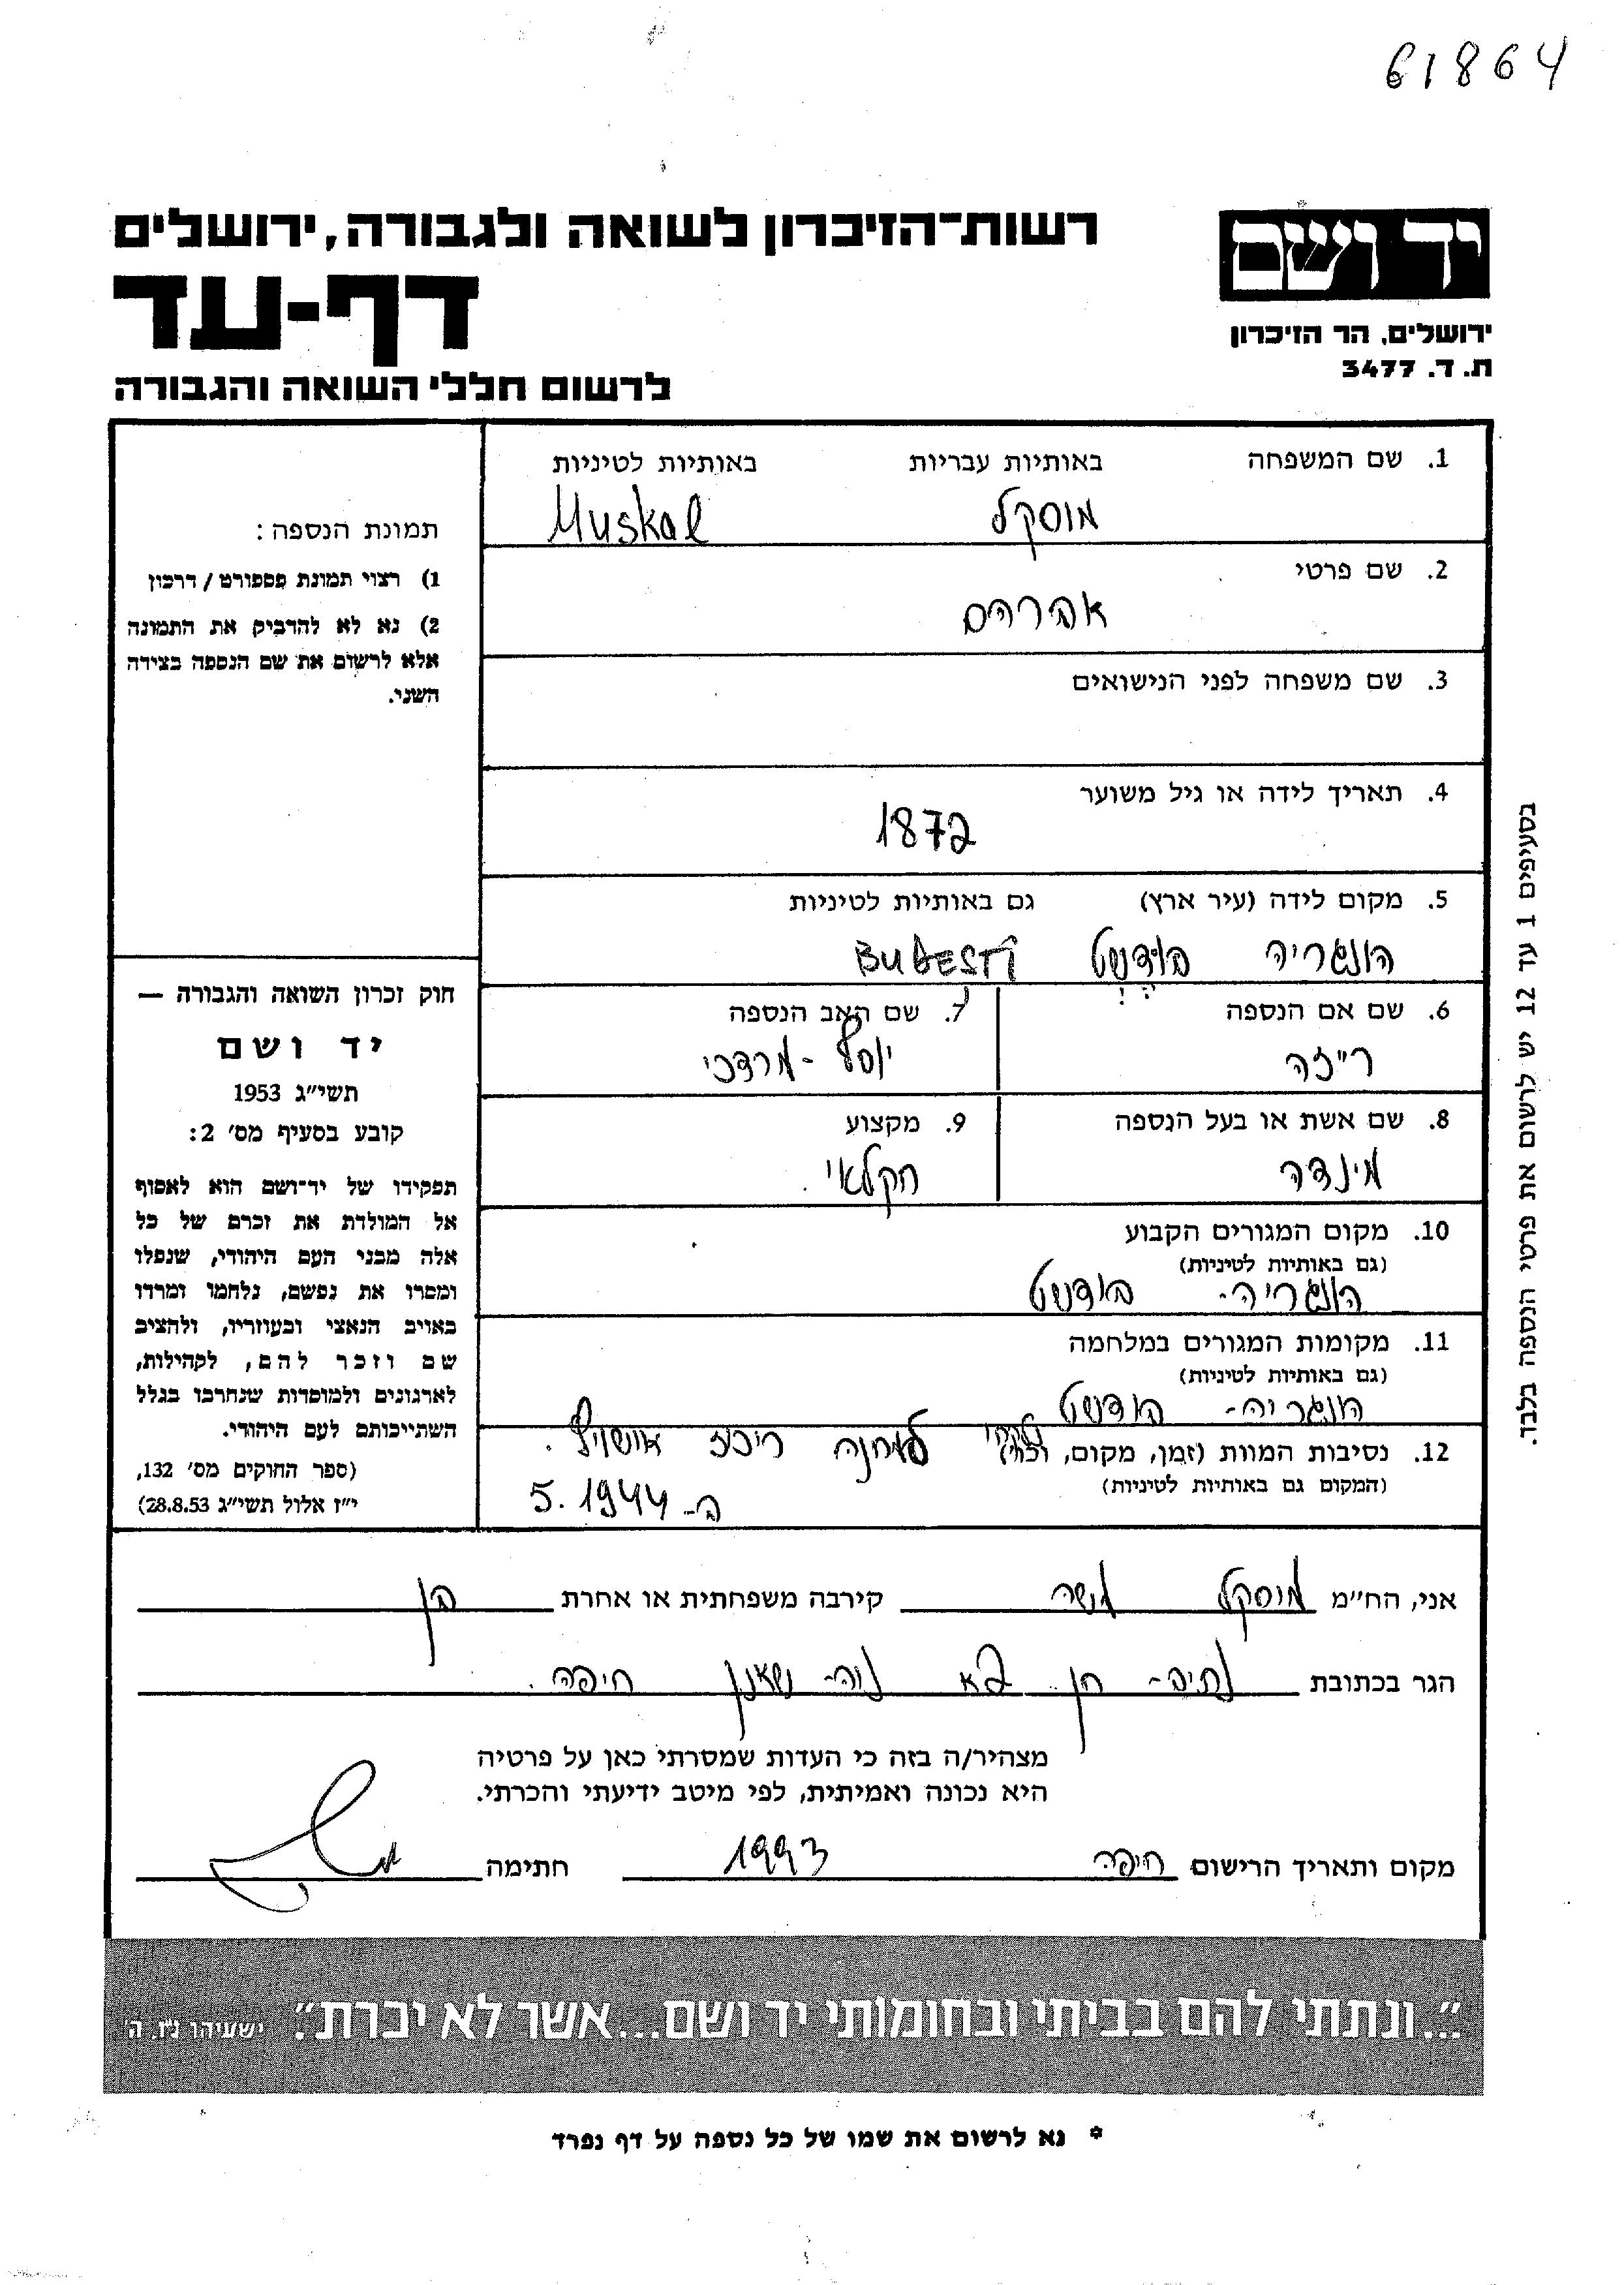 61864
יד ושם
ירושלים, הר הזיכרון
ת. ד. 3477
רשות־הזיכרון לשואה ולגבורה, ירושלים
דף-עד
לרשום חללי השואה והגבורה
1. שם המשפחה באותיות עבריות באותיות לטיניות
מוסקל Muskal
2. שם פרטי
אברהם
3. שם משפחה לפני הנישואים
4. תאריך לידה או גיל משוער
1872
5. מקום לידה (עיר ארץ) גם באותיות לטיניות
הונגריה בודשט BUDESTI
6. שם אם הנספה 7. שם האב הנספה
רייזה יוסף - מרדכי
8. שם אשת או בעל הנספה 9. מקצוע
מינדה חקלאי
10. מקום המגורים הקבוע
(גם באותיות לטיניות)
הונגריה- בודשט
11. מקומות המגורים במלחמה
(גם באותיות לטיניות)
הונגריה- בודשט
12. נסיבות המוות (זמן, מקום, וכו') למחנה ריכוז אושויץ.
(המקום גם באותיות לטיניות)
ב- 5.1944
תמונת הנספה:
1) רצוי תמונת פספורט / דרכון
2) נא לא להדביק את התמונה
אלא לרשום את שם הנספה בצידה
השני.
חוק זכרון השואה והגבורה —
יד ושם
תשי״ג 1953
קובע בסעיף מס׳ 2:
תפקידו של יד־ושם הוא לאסוף
אל המולדת את זכרם של כל
אלה מבני העם היהודי, שנפלו
ומסרו את נפשם, נלחמו ומרדו
באויב הנאצי ובעוזריו, ולהציב
שם וזכר להם, לקהילות,
לארגונים ולמוסדות שנחרבו בגלל
השתייכותם לעם היהודי.
(ספר החוקים מס׳ 132,
י״ז אלול תשי״ג 28.8.53)
בסעיפים 1 עד 12 יש לרשום את פרטי הנספה בלבד.
אני, הח״מ מוסקל אשר קירבה משפחתית או אחרת בן
הגר בכתובת נתיב- חן נוה- שאנן חיפה.
מצהיר/ה בזה כי העדות שמסרתי כאן על פרטיה
היא נכונה ואמיתית, לפי מיטב ידיעתי והכרתי.
מקום ותאריך הרישום חיפה 1993 חתימה
״...ונתתי להם בביתי ובחומותי יד ושם...אשר לא יכרת״. ישעיהו נ״ו, ה׳
* נא לרשום את שמו של כל נספה על דף נפרד